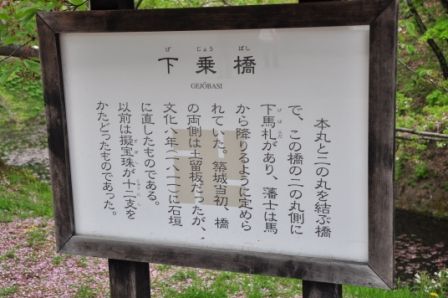 下乗橋
げじょうばし
GEJŌBASI
本丸と二の丸を結ぶ橋
で、この橋の二の丸側に
下馬札があり、藩士は馬
から降りるように定めら
れていた。築城当初、橋
の両側は土留板だったが、
文化八年(一八一一)に石垣
に直したものである。
以前は擬宝珠が十二支を
かたどったものであった。